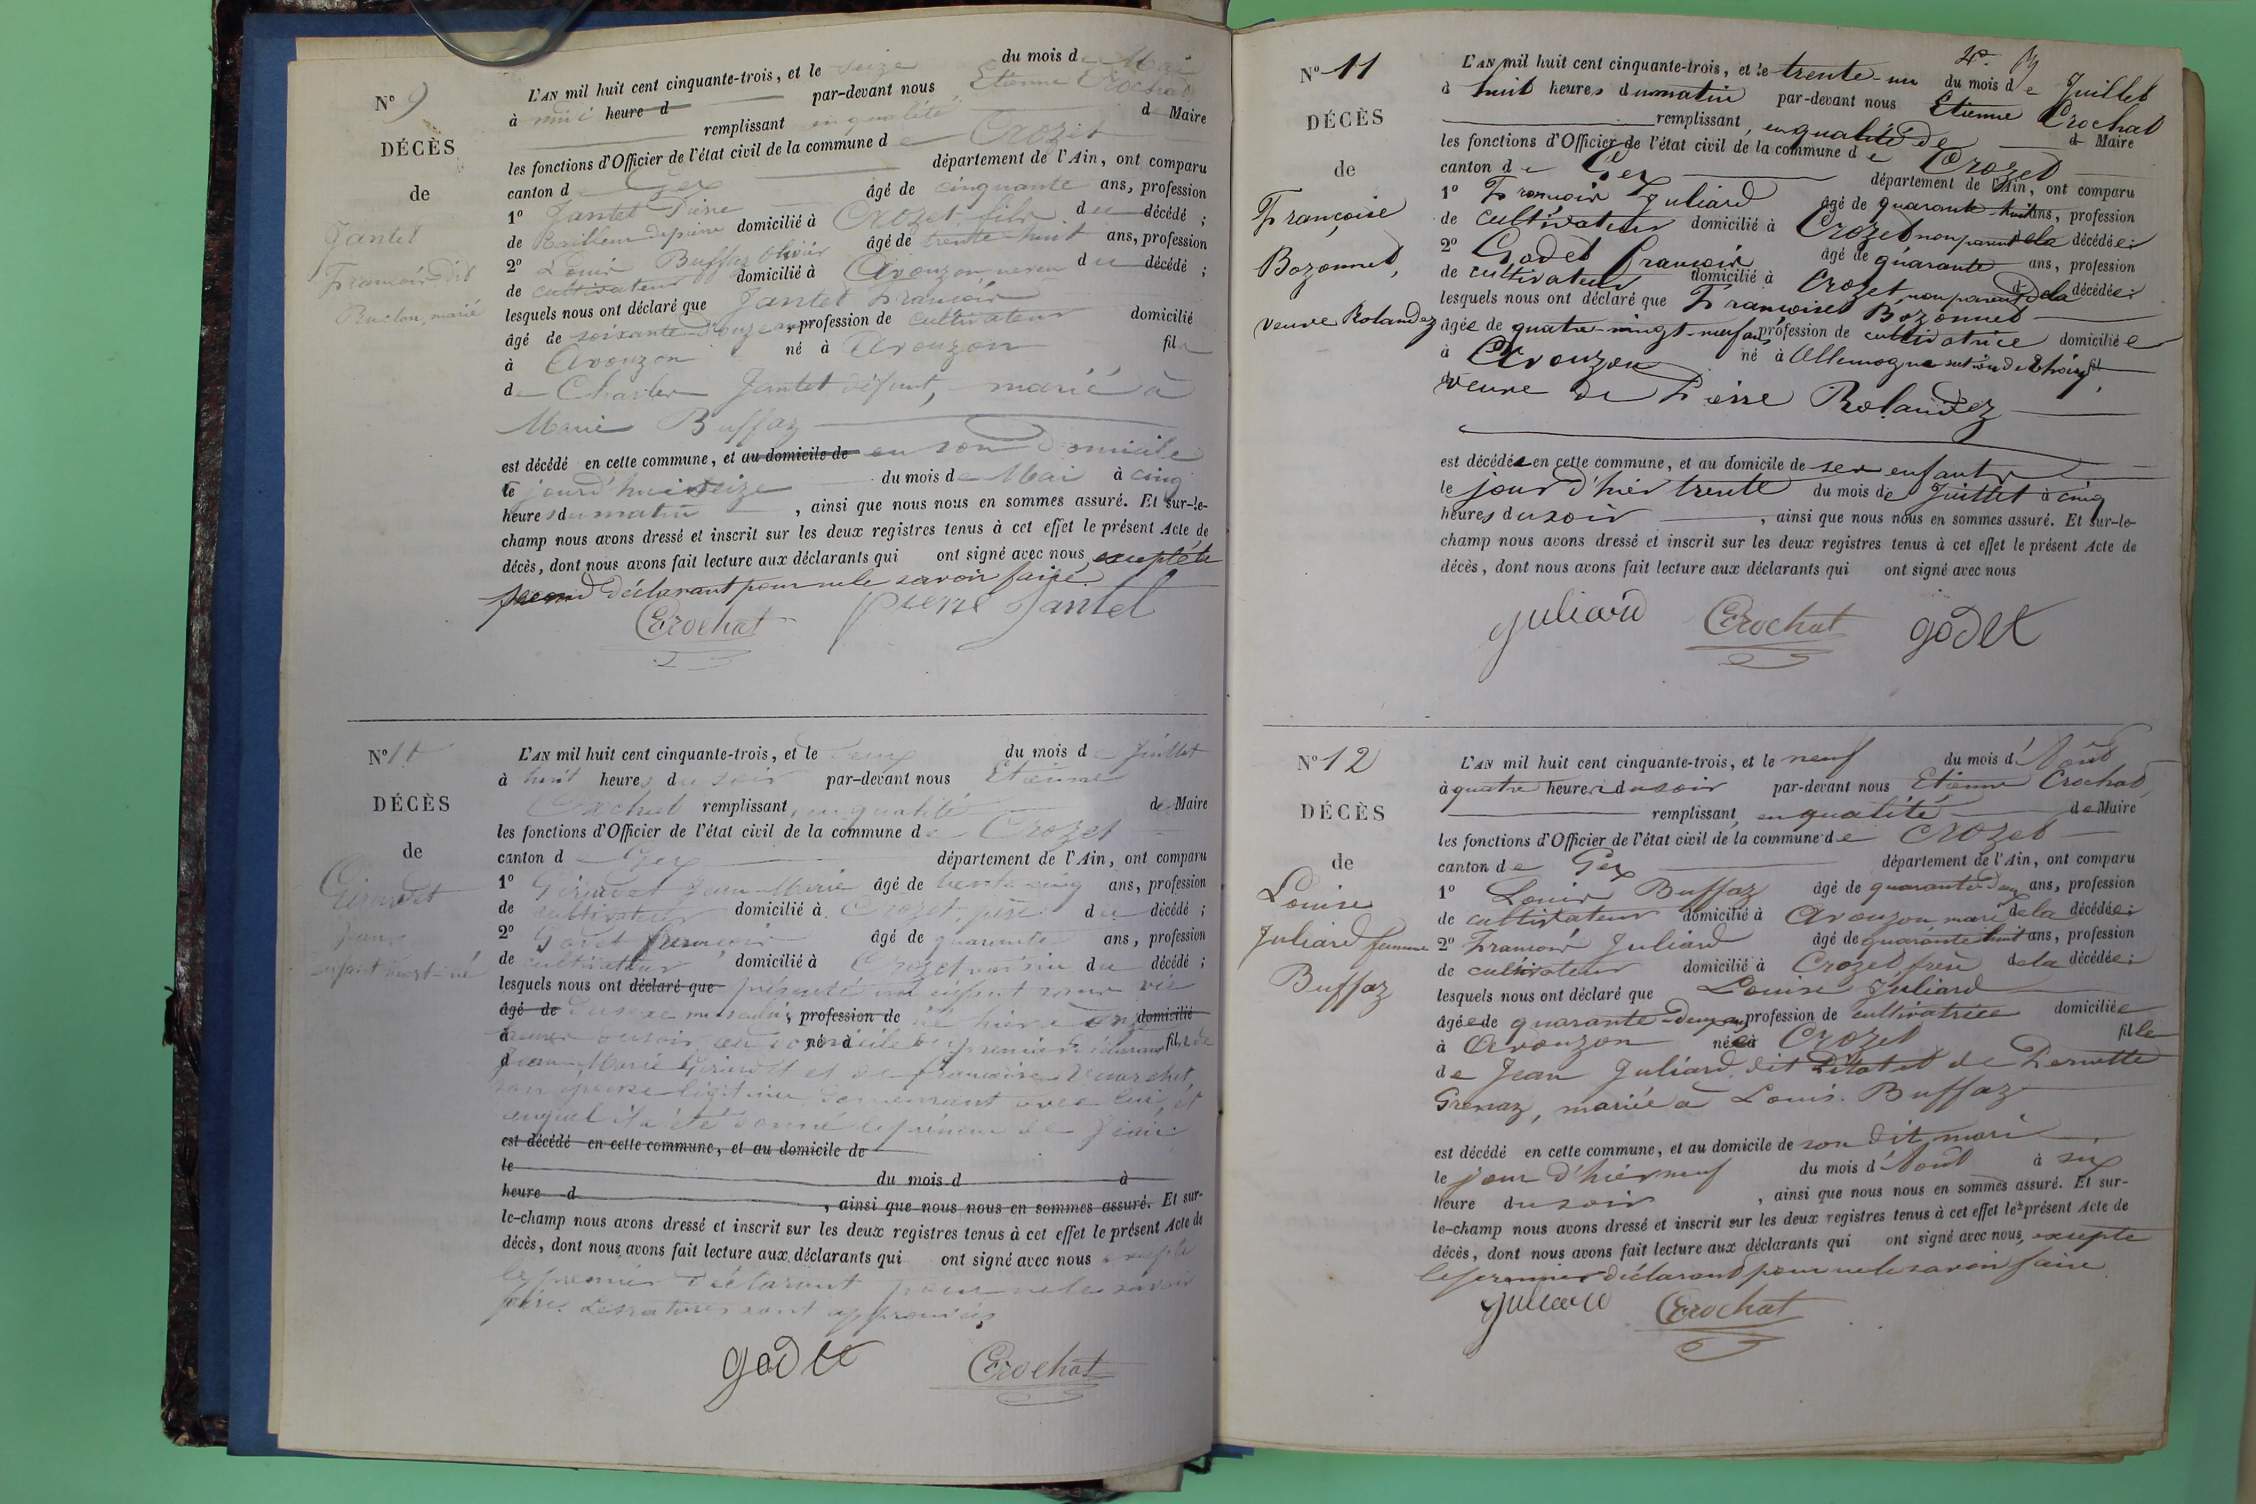 N° 9
DÉCÈS
de
Jantet
François dit
marié
L'AN mil huit cent cinquante-trois, et le seize du mois de Mai
à midi heure d par-devant nous Etienne Crochat
remplissant en qualité d Maire
les fonctions d'Officier de l'état civil de la commune de Crozet
canton de Gex département de l'Ain, ont comparu
1° Jantet Pierre âgé de cinquante ans, profession
de domicilié à Crozet fils du décédé;
2° Louis Buffaz Olivier âgé de trente-huit ans, profession
de cultivateur domicilié à Avouzon neveu du décédé;
lesquels nous ont déclaré que Jantet François
âgé de soixante-douze ans, profession de cultivateur domicilié
à Avouzon né à Avouzon fils
de Charles Jantet défunt, marié à
Marie Buffaz
est décédé en cette commune, et au domicile de en son domicile
le jourd'hui seize du mois de Mai à cinq
heures du matin, ainsi que nous nous en sommes assuré. Et sur-le-
champ nous avons dressé et inscrit sur les deux registres tenus à cet effet le présent Acte de
décès, dont nous avons fait lecture aux déclarants qui ont signé avec nous, excepté le
second déclarant pour ne le savoir faire.
Crochat Pierre Jantet
N° 10
DÉCÈS
de
Girardet
Jean
enfant mort-né
L'AN mil huit cent cinquante-trois, et le du mois de Juillet
à huit heures du soir par-devant nous Etienne
Crochat remplissant, en qualité de Maire
les fonctions d'Officier de l'état civil de la commune de Crozet
canton de Gex département de l'Ain, ont comparu
1° Girardet Jean-Marie âgé de trente-cinq ans, profession
de cultivateur domicilié à Crozet, père du décédé;
2° Godet françois âgé de quarante ans, profession
de cultivateur domicilié à Crozet voisin du décédé;
lesquels nous ont déclaré que présenté un enfant sans vie
âgé de du sexe masculin, profession de né hier à onze domicilié
à heures du soir, au domicile du premier déclarant né à fils de
d Jean-Marie Girardet et de françoise
son épouse légitime demeurant avec lui, et
auquel il a été donné le prénom de Jean.
est décédé en cette commune, et au domicile de
le du mois d à
heure d, ainsi que nous nous en sommes assuré. Et sur-
le-champ nous avons dressé et inscrit sur les deux registres tenus à cet effet le présent Acte de
décès, dont nous avons fait lecture aux déclarants qui ont signé avec nous excepté
le premier déclarant pour ne le savoir
faire. Les ratures sont approuvées
godet Crochat
N° 11
DÉCÈS
de
Françoise
Bozonnet,
veuve Rolandez
L'AN mil huit cent cinquante-trois, et le trente-un du mois de Juillet
à huit heures du matin par-devant nous Etienne Crochat
remplissant, en qualité de d Maire
les fonctions d'Officier de l'état civil de la commune de Crozet
canton de Gex département de l'Ain, ont comparu
1° François Juliard âgé de quarante-huit ans, profession
de cultivateur domicilié à Crozet non parent de la décédée;
2° Godet françois âgé de quarante ans, profession
de cultivateur domicilié à Crozet, non parent de la décédée;
lesquels nous ont déclaré que Françoise Bozonnet
âgée de quatre-vingt-neuf ans, profession de cultivatrice domiciliée
à Avouzon né à Allemogne section de Thoiry, fil
d veuve de Pierre Rolandez
est décédée en cette commune, et au domicile de ses enfants
le jour d'hier trente du mois de Juillet à cinq
heures du soir, ainsi que nous nous en sommes assuré. Et sur-le-
champ nous avons dressé et inscrit sur les deux registres tenus à cet effet le présent Acte de
décès, dont nous avons fait lecture aux déclarants qui ont signé avec nous
juliard Crochat godet
N° 12
DÉCÈS
de
Louise
Juliard femme
Buffaz
L'AN mil huit cent cinquante-trois, et le neuf du mois d'Août
à quatre heures du soir par-devant nous Etienne Crochat,
remplissant, en qualité de Maire
les fonctions d'Officier de l'état civil de la commune de Crozet
canton de Gex département de l'Ain, ont comparu
1° Louis Buffaz âgé de quarante-deux ans, profession
de cultivateur domicilié à Avouzon mari de la décédée;
2° François Juliard âgé de quarante huit ans, profession
de cultivateur domicilié à Crozet frère de la décédée;
lesquels nous ont déclaré que Louise Juliard
âgée de quarante-deux ans, profession de cultivatrice domiciliée
à Avouzon née à Crozet fille
de Jean Juliard dit de Pernette
Grenaz, mariée à Louis Buffaz
est décédé en cette commune, et au domicile de son dit mari
le jour d'hier neuf du mois d'Août à six
heure du soir, ainsi que nous nous en sommes assuré. Et sur-
le-champ nous avons dressé et inscrit sur les deux registres tenus à cet effet le présent Acte de
décès, dont nous avons fait lecture aux déclarants qui ont signé avec nous, excepté
le premier déclarant pour ne le savoir faire.
juliard Crochat